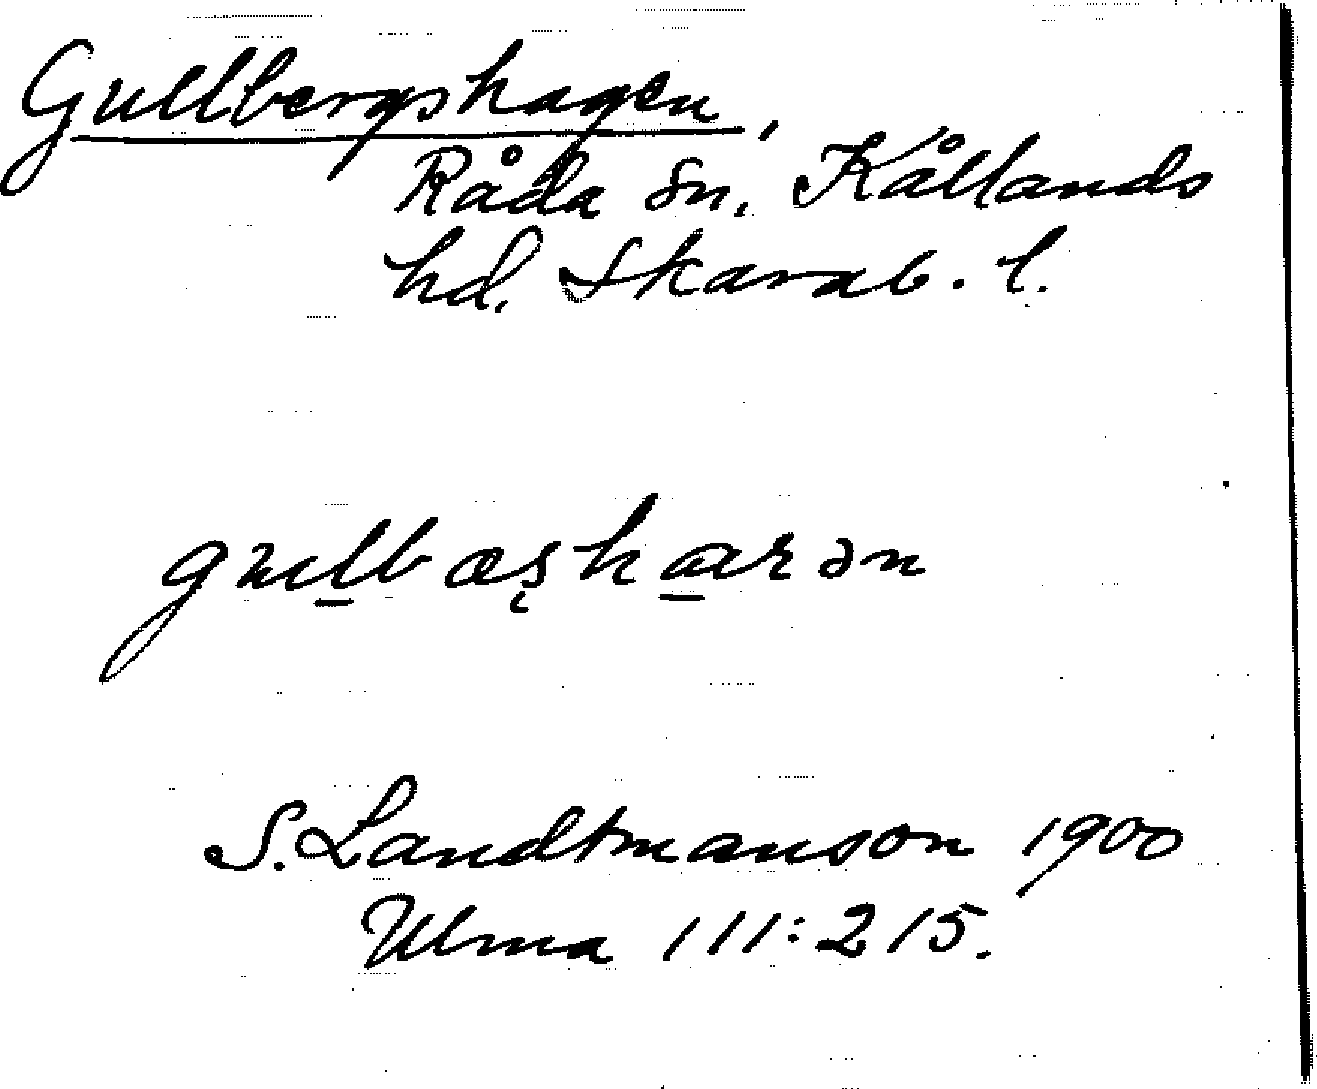 Gullbergshagen,
Råda sn, Kållands
hd. Skarab. l.
S. Landtmanson 1900
Ulma 111:215.